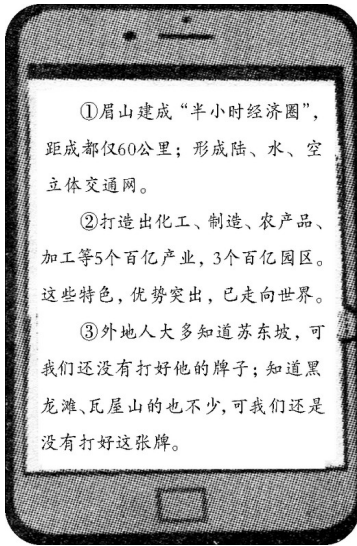 ①眉山建成“半小时经济圈”,
距成都仅60公里；形成陆、水、空
立体交通网。
②打造出化工、制造、农产品、
加工等5个百亿产业，3个百亿园区。
这些特色，优势突出，已走向世界。
③外地人大多知道苏东坡，可
我们还没有打好他的牌子；知道黑
龙滩、瓦屋山的也不少,可我们还是
没有打好这张牌。